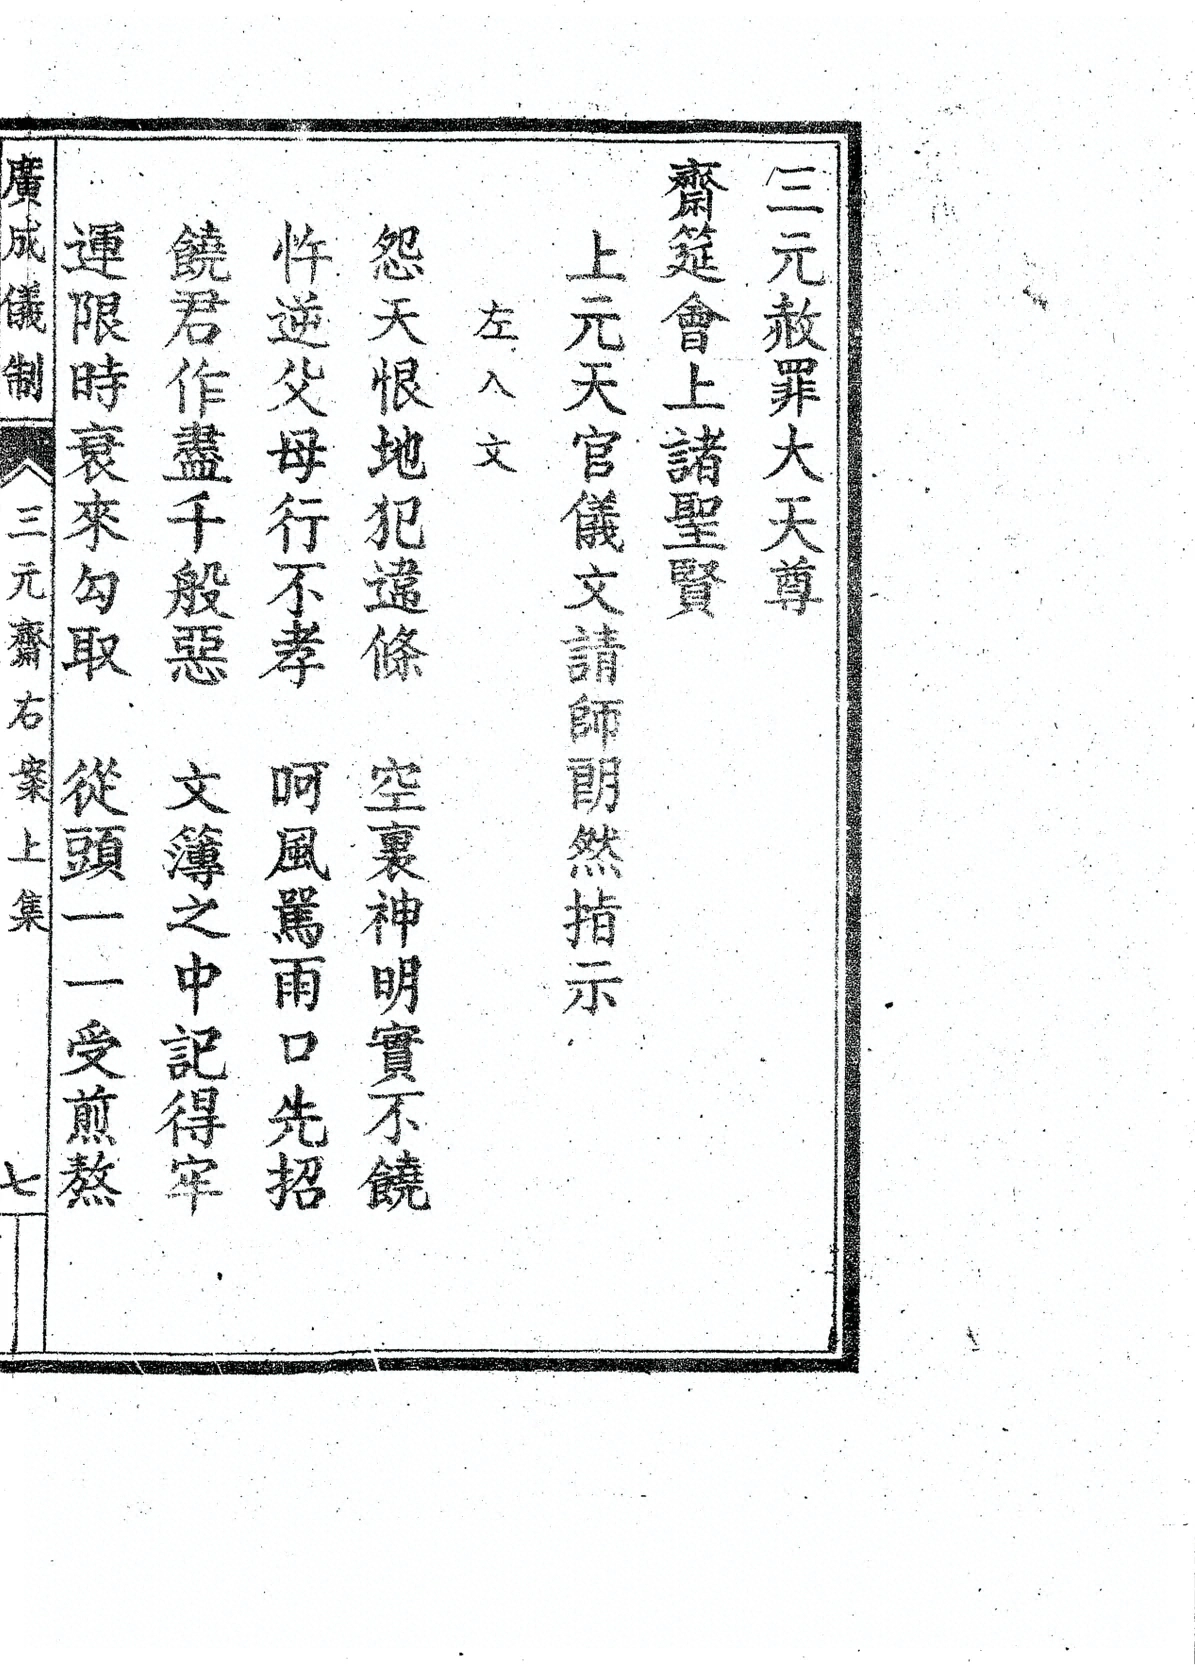 三元赦罪大天尊
齋筵會上諸聖賢
上元天官儀文請師朗然指示
左入文
怨天恨地犯違條　空裏神明實不饒
忤逆父母行不孝　呵風罵雨口先招
饒君作盡千般惡　文簿之中記得牢
運限時衰來勾取　從頭一一受煎熬
廣成儀制　三元齋右案上集　七